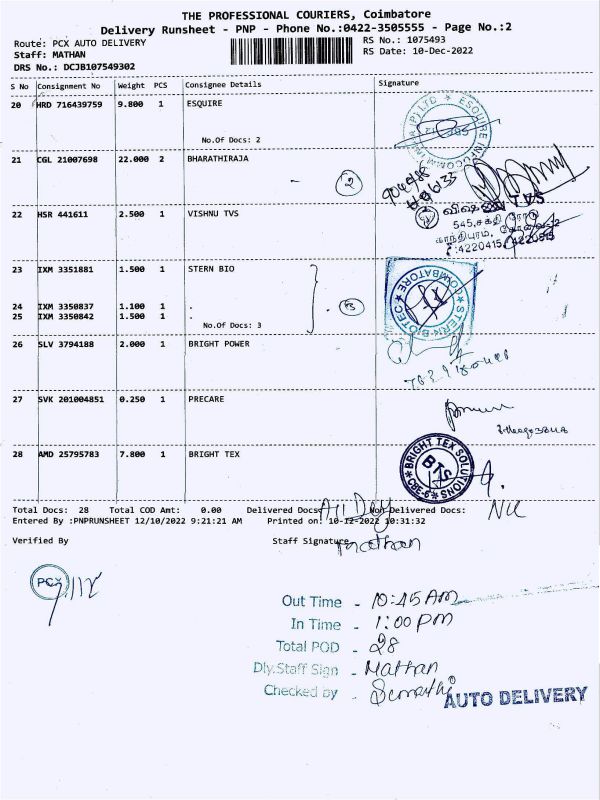 THE PROFESSIONAL COURIERS, Coimbatore
Delivery Runsheet - PNP - Phone No.:0422-3505555 - Page No.:2
Route: PCX AUTO DELIVERY
Staff: MATHAN
DRS No.: DCJB107549302
RS No.: 1075493
RS Date: 10-Dec-2022
S No Consignment No Weight PCS Consignee Details Signature
20 HRD 716439759 9.800 1 ESQUIRE
No.Of Docs: 2
ESQUIRE INFOCOMM
21 CGL 21007698 22.000 2 BHARATHIRAJA
2
22 HSR 441611 2.500 1 VISHNU TVS
விஷ்ணு TVS
545,சக்தி ரோடு
காந்திபுரம், கோவை-12
:4220415, 4220515
23 IXM 3351881 1.500 1 STERN BIO
24 IXM 3350837 1.100 1 .
25 IXM 3350842 1.500 1 .
No.Of Docs: 3
3
STERN-BIOTEC COIMBATORE
26 SLV 3794188 2.000 1 BRIGHT POWER
27 SVK 201004851 0.250 1 PRECARE
28 AMD 25795783 7.800 1 BRIGHT TEX
BRIGHT TEX SOLUTIONS
BTS
CBE-6
Total Docs: 28 Total COD Amt: 0.00 Delivered Docs: All Dey Non Delivered Docs: Nil
Entered By :PNPRUNSHEET 12/10/2022 9:21:21 AM Printed on: 10-12-2022 10:31:32
Verified By Staff Signature Mathan
PCX
Out Time - 10:45 AM
In Time - 1:00 PM
Total POD - 28
Dly.Staff Sign - Mathan
Checked by -
AUTO DELIVERY